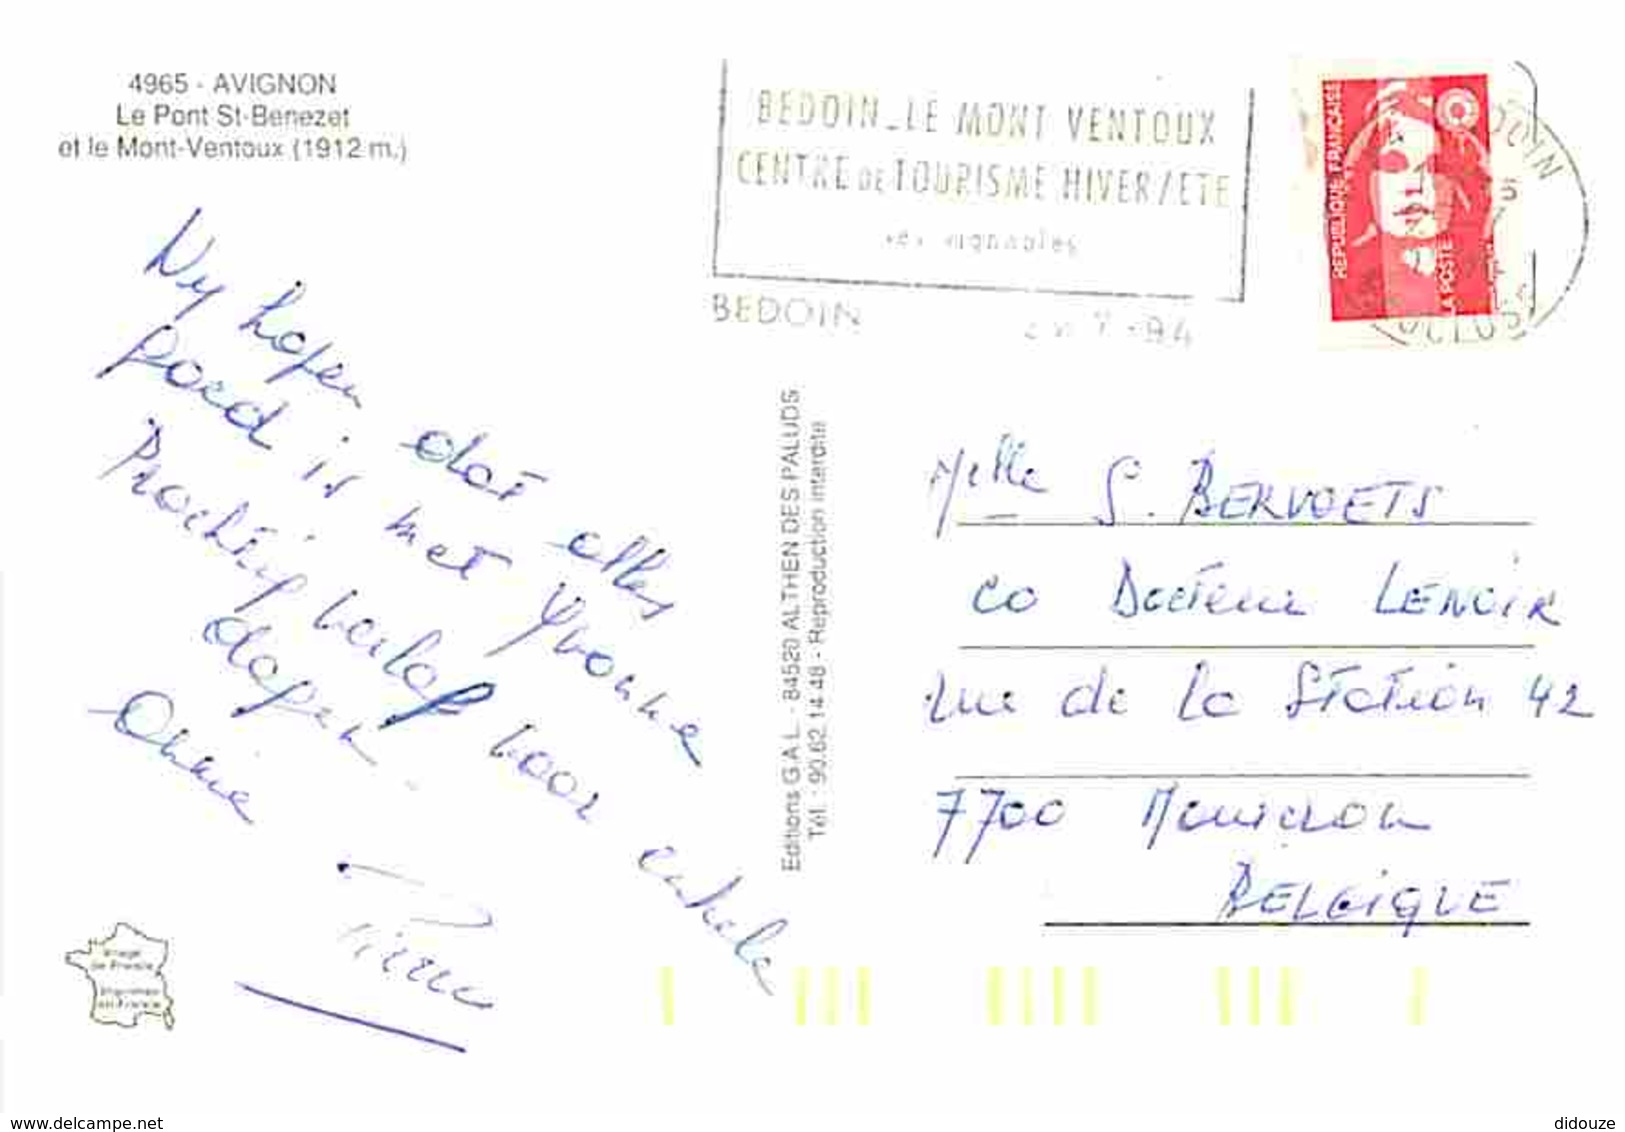 4965 - AVIGNON
Le Pont St-Benezet
et le Mont-Ventoux (1912 m.)
BEDOIN_LE MONT VENTOUX
CENTRE DE TOURISME HIVER/ETE
ses vignobles
BEDOIN
7 -94
REPUBLIQUE FRANÇAISE
LA POSTE
Wy hopen dat alles
goed is met Yvonne
Prachtig verlof voor enkele
dagen.
Annie
Pierre
Editions G.A.L. - 84520 ALTHEN DES PALUDS
Tél. : 90.62.14.48 - Reproduction interdite
Melle S. BERVOETS
co Docteur LENOIR
rue de la Station 42
7700 Mouscron
BELGIQUE
Image
de France
Imprimée
en France
www.delcampe.net
didouze